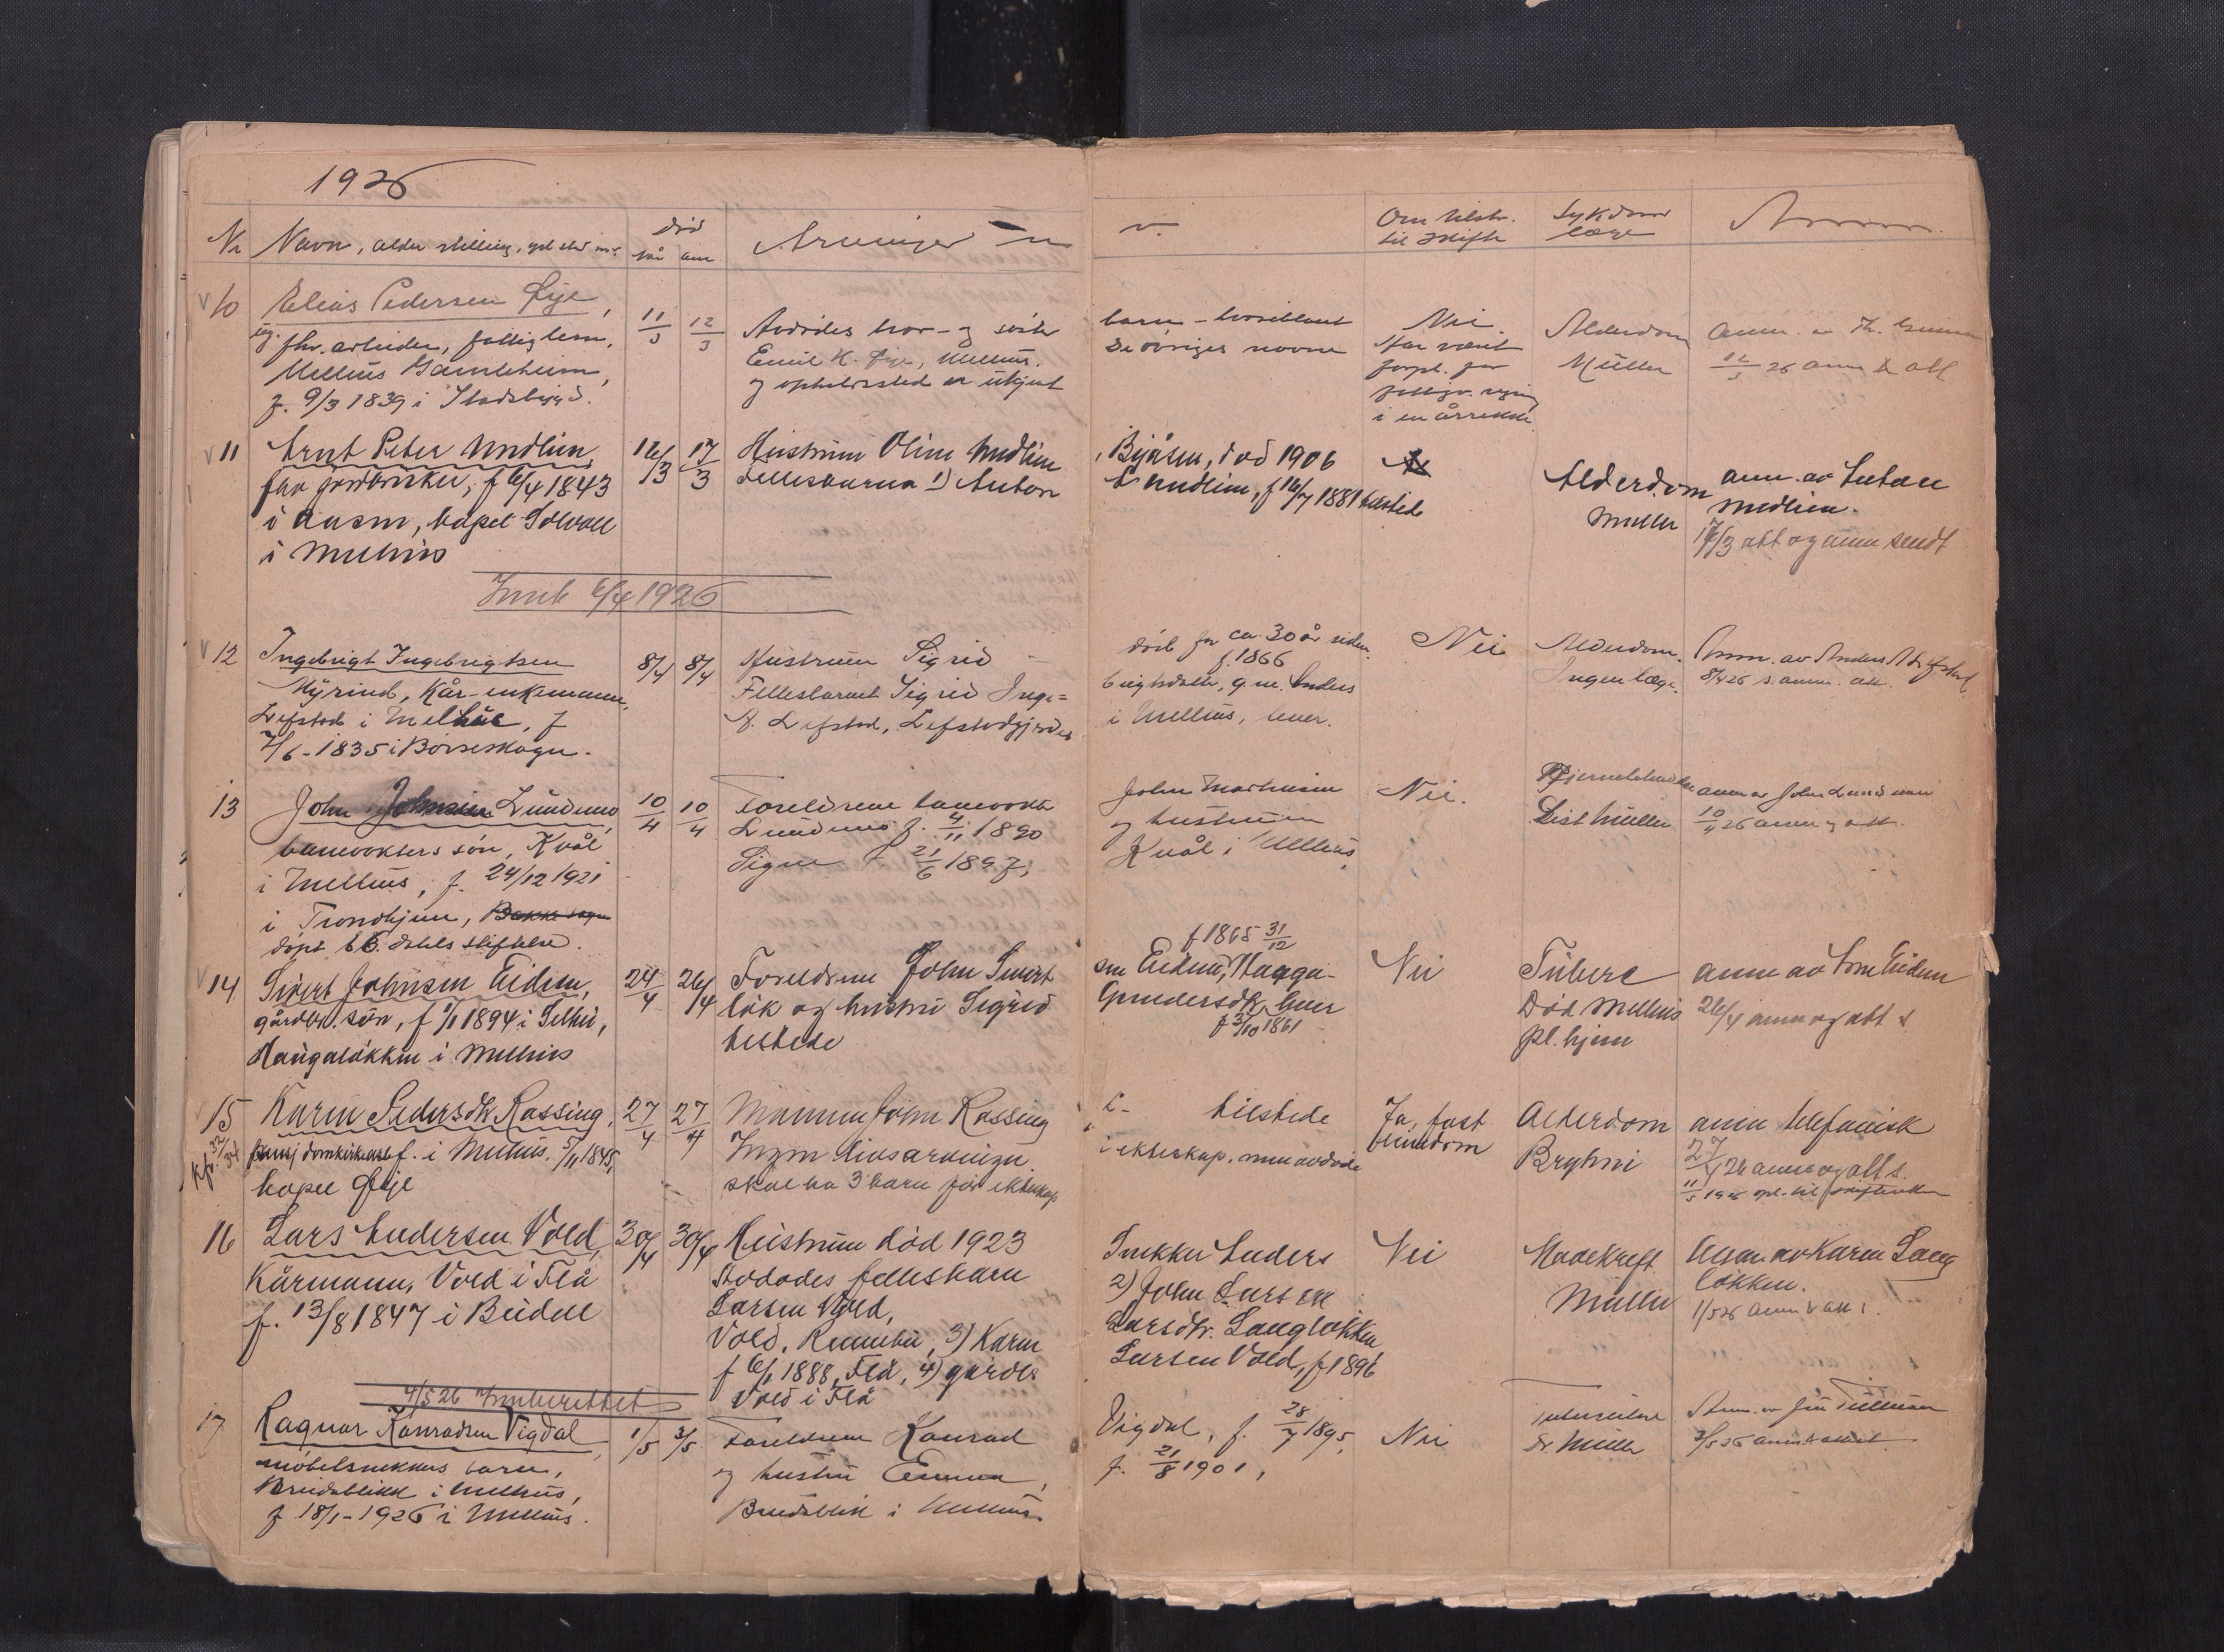 1926
Nr Navn, alder stilling, død
når anm. Arvinger
Om tilstr. til skifte
Sykdom læge
Anm.
10 Elias Pedersen Øye,
ug. fhv. arbeider, fattiglem,
Melhus Gamleheim,
f. 9/3 1839 i Stadsbygd.
11/3 12/3
Avdødes bror- og søster
Emil K. Øye, Melhus.
og opholdssted er ukjent
barn - hvoriblant
De øvriges navne
Nei.
Har vært
forpl. for
i en årrekke
Alderdom
Müller
Anm. av
12/3 26 anm & att
11 Arnt Peter Undlien
fhv gårdbruker, f 6/4 1843
i bopel Solvoll
i Melhus
16/3 17/3
Hustruen Oline Undlien
Fellesbarna 1) Anton
Byåsen, død 1906
Undlien, f 16/7 1881 tilstede
Alderdom
Müller
anm. av Anton
Undlien.
17/3 att og anm sendt
Innb 6/4 1926
12 Ingebrigt Ingebrigtsen
Myrind, Kår-enkemann,
Lefstad i Melhus, f
7/6-1835 i Børseskogn.
8/4 8/4
Hustruen Sigrid -
Fellesbarnet Sigrid Inge=
A. Lefstad, Lefstadgjerdet
død for ca. 30 år siden.
f. 1866
brigtsdatter, g. m. Anders
i Melhus, lever.
Nei
Alderdom.
Ingen læge.
Anm. av Anders A Lefstad
8/4 26 s. anm. att.
13 John Johnsen Lundemo
banevokters søn, Kvål
i Melhus, f. 24/12 1921
i Trondhjem, Bakke sogn
døpt E.C. Dahls stiftelse.
10/4 10/4
Foreldrene banevokter
Lundemo f. 4/11 1890
Signe f. 21/6 1897,
John Martinsen
og hustruen
Kvål i Melhus,
Nei.
Dist Müller
anm av John Lundemo
10/4 26 anm og att.
14 Sivert Johnsen Eidem,
gårdbr. søn, f 1/1 1894 i Selbu,
Haugaløkken i Melhus
24/4 26/4
Foreldrene John Sivert
løk og hustru Sigrid
tilstede
f 1865 31/12
sen Eidem, Hauga-
Gundersdtr, lever
f 31/10 1861
Nei
Tuberc
Død Melhus
pl. hjem
anm av Eidem
26/4 anm og att s
15 Karen Pedersdtr Rossing,
f. i Melhus. 5/11 1845,
bopel Øye
27/4 27/4
Mannen John Rossing
Ingen livsarvinger
skal ha 3 barn før ekteskap
tilstede
i ekteskap. men avdøde
Ja, fast
eiendom
Alderdom
Bryhni
anm telefonisk
27/4 26 anm og att s.
11/5 1926 opl. til skifteretten
16 Lars Andersen Vold,
Kårmann, Vold i Flå
f. 13/8 1847 i Budal
30/4 30/4
Hustruen død 1923
Avdødes fellesbarn
Larsen Vold,
Vold, Rennebu, 3) Karen
f 6/1 1888, Flå, 4) gårdbr
Vold i Flå
Snekker Anders
2) John Larsen
Larsdtr. Langløkken
Larsen Vold, f 1896
Nei
Mavekreft
Müller
Anm. av Karen Lang
løkken.
1/5 26 anm & att s.
4/5 26 Innberettet
17 Ragnar Konradsen Vigdal,
møbelsnekkers barn,
Breidablikk i Melhus,
f 18/1-1926 i Melhus.
1/5 3/5
Foreldrene Konrad
og hustru Emma,
Breidablik i Melhus.
Vigdal, f. 28/7 1895,
f. 21/8 1901,
Nei
Tuberkulose
Dr Müller
3/5 26 anm & attest.